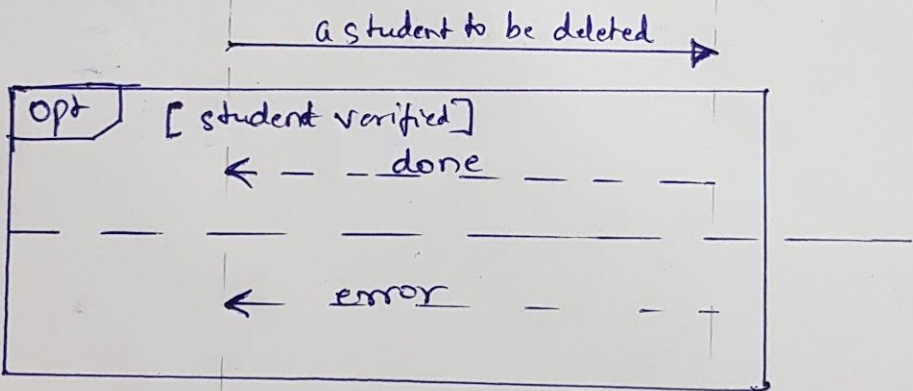 a student to be deleted
opt
[ student verified]
done
error